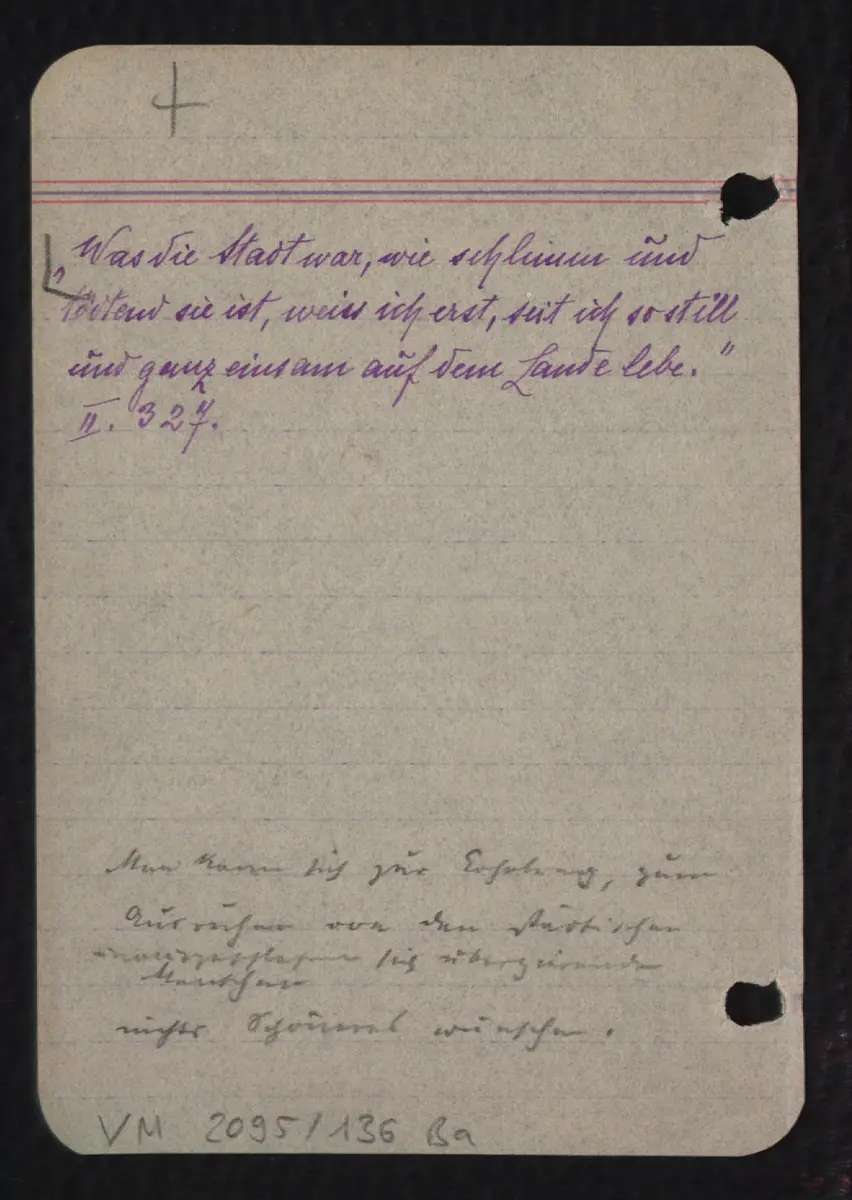 „Was die Stadt war, wie schlimm und
tötend sie ist, weiss ich erst, seit ich so still
und ganz einsam auf dem Lande lebe."
II. 327.
Man kann sich zur Erholung, zum
Ausruhen von den städtischen
sich
Menschen
nichts Schöneres wünschen.
VM 2095/136 Ba